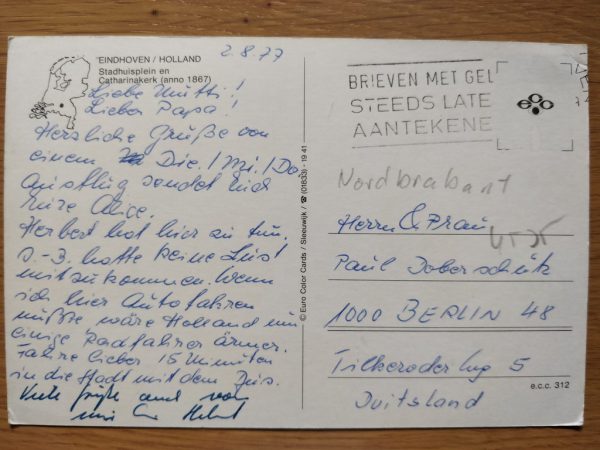 EINDHOVEN / HOLLAND
Stadhuisplein en
Catharinakerk (anno 1867)
2.8.77
Liebe Mutti!
Lieber Papa!
Herzliche Grüße von
einem Die./Mi./Do
Ausflug sendet Euch
Eure Alice.
Herbert hat hier zu tun,
J.-B. hatte keine Lust
mitzukommen. Wenn
ich hier Autofahren
müßte wäre Holland um
einige Radfahrer ärmer.
Fahre lieber 15 Minuten
in die Stadt mit dem Bus.
Viele Grüße auch von
© Euro Color Cards / Sleeuwijk / ☎ (01833) - 19 41
BRIEVEN MET GEL
STEEDS LATE
AANTEKENE
Nordbrabant
Herrn & Frau
Paul Doberschütz
1000 BERLIN 48
Tilkeroder Weg 5
Duitsland
e.c.c. 312